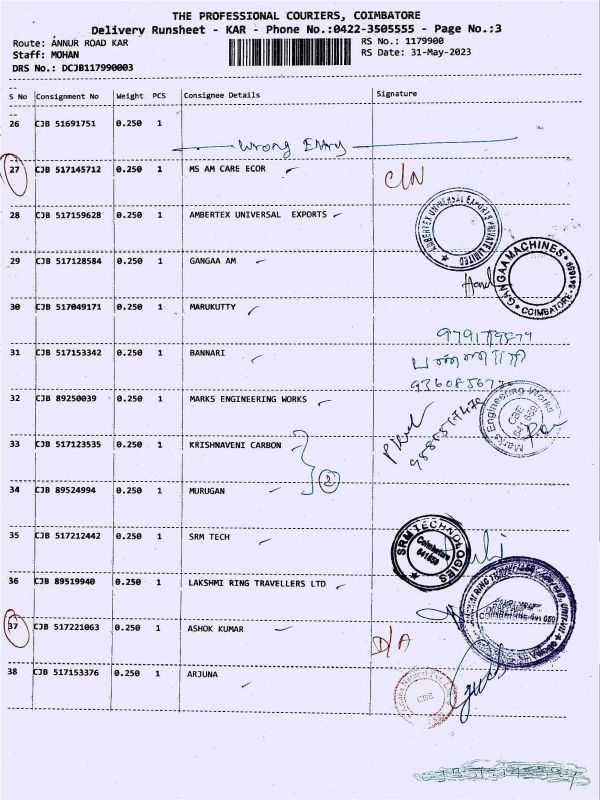 THE PROFESSIONAL COURIERS, COIMBATORE
Delivery Runsheet - KAR - Phone No.:0422-3505555 - Page No.:3
Route: ANNUR ROAD KAR RS No.: 1179900
Staff: MOHAN RS Date: 31-May-2023
DRS No.: DCJB117990003
S No Consignment No Weight PCS Consignee Details Signature
26 CJB 51691751 0.250 1
Wrong Entry
27 CJB 517145712 0.250 1 MS AM CARE ECOR C/N
28 CJB 517159628 0.250 1 AMBERTEX UNIVERSAL EXPORTS
AMBERTEX UNIVERSAL EXPORTS PRIVATE LIMITED
29 CJB 517128584 0.250 1 GANGAA AM
GANGAA MACHINES COIMBATORE
30 CJB 517049171 0.250 1 MARUKUTTY
31 CJB 517153342 0.250 1 BANNARI
32 CJB 89250039 0.250 1 MARKS ENGINEERING WORKS
Marks Engineering Works CBE 641 659
33 CJB 517123535 0.250 1 KRISHNAVENI CARBON
2
34 CJB 89524994 0.250 1 MURUGAN
35 CJB 517212442 0.250 1 SRM TECH
SRM TECHNOLOGIES Coimbatore
36 CJB 89519940 0.250 1 LAKSHMI RING TRAVELLERS LTD
37 CJB 517221063 0.250 1 ASHOK KUMAR D/A
38 CJB 517153376 0.250 1 ARJUNA
CBE